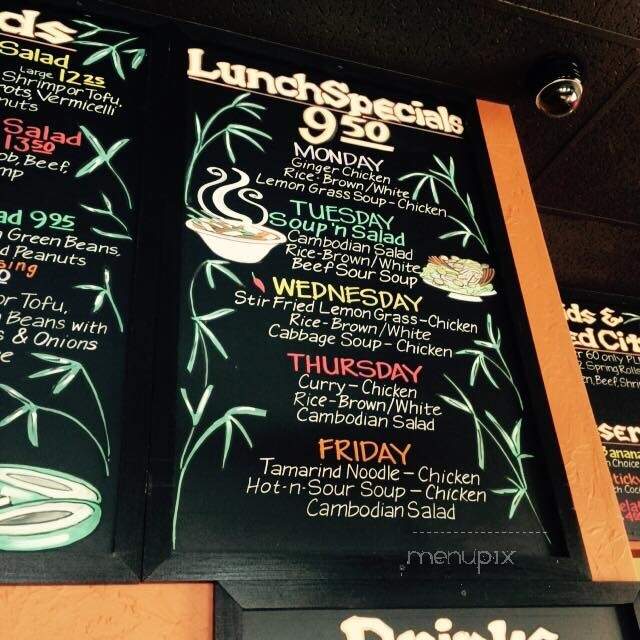 Salad
Large 12.25
Shrimp or Tofu.
Vermicelli
Salad
13.50
Beef,
9.95
Green Beans,
Peanuts
or Tofu,
Beans with
& Onions
Lunch Specials
9.50
MONDAY
Ginger Chicken
Rice-Brown/White
Lemon Grass Soup-Chicken
TUESDAY
Soup 'n Salad
Cambodian Salad
Rice-Brown/White
Beef Sour Soup
WEDNESDAY
Stir Fried Lemon Grass-Chicken
Rice-Brown/White
Cabbage Soup-Chicken
THURSDAY
Curry-Chicken
Rice-Brown/White
Cambodian Salad
FRIDAY
Tamarind Noodle-Chicken
Hot-n-Sour Soup-Chicken
Cambodian Salad
&
60 only
2 Spring Rolls
Beef,
Choice
Drinks
menupix